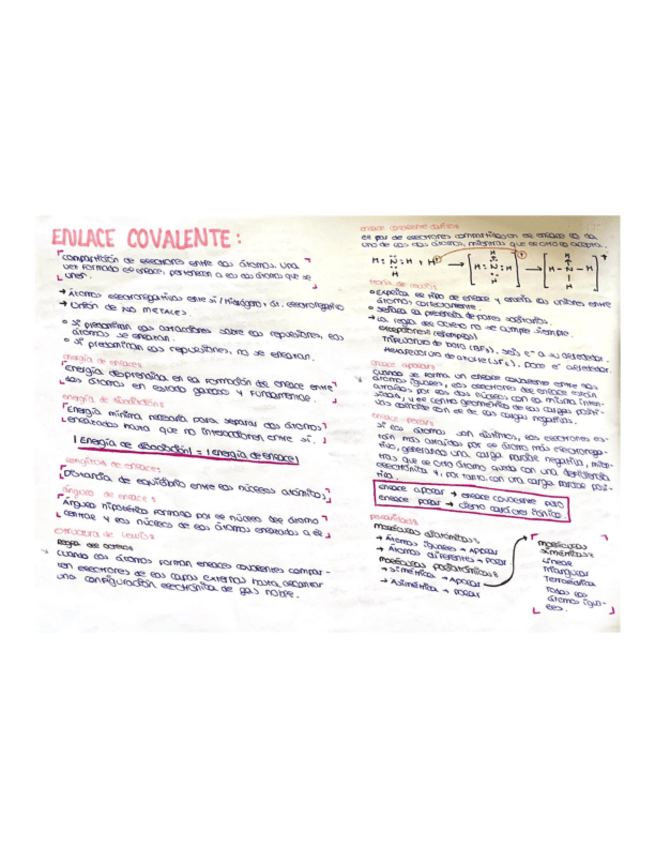 ENLACE COVALENTE:
Compartición de electrones entre dos átomos. Una
vez formado el enlace, pertenecen a los dos átomos que se
unen.
→ Átomos electronegativos entre sí / Hidrógeno + át. electronegativo
→ Unión de NO METALES.
Si predominan las atracciones sobre las repulsiones, los
átomos se enlazan.
Si predominan las repulsiones, no se enlazan.
energía de enlace:
Energía desprendida en la formación del enlace entre
dos átomos en estado gaseoso y fundamental.
energía de disociación:
Energía mínima necesaria para separar dos átomos
enlazados hasta que no interaccionen entre sí.
|Energía de disociación| = |energía de enlace|
longitud de enlace:
Distancia de equilibrio entre los núcleos atómicos.
ángulo de enlace:
Ángulo hipotético formado por el núcleo del átomo
central y los núcleos de los átomos enlazados a él.
estructura de Lewis:
Regla del octeto
Cuando los átomos forman enlaces covalentes compar-
ten electrones de las capas externas hasta alcanzar
una configuración electrónica de gas noble.
enlace covalente dativo:
El par de electrones compartidos en el enlace lo da
uno de los dos átomos, mientras que el otro lo acepta.
H
H : N : H + H+ → [H : N : H] → [H - N - H]+
H
teoría de Lewis:
Explica el tipo de enlace y enseña las uniones entre
átomos correctamente.
Señala la presencia de pares solitarios.
→ La regla del octeto no se cumple siempre.
excepciones (ejemplos):
Trifluoruro de boro (BF3), seis e- a su alrededor.
Hexafluoruro de azufre (SF6), doce e- alrededor.
enlace apolar:
Cuando se forma un enlace covalente entre dos
átomos iguales, los electrones del enlace están
atraídos por los dos núcleos con la misma inten-
sidad, y el centro geométrico de las cargas positi-
vas coincide con el de las cargas negativas.
enlace polar:
Si los átomos son distintos, los electrones es-
tán más atraídos por el átomo más electronega-
tivo, generando una carga parcial negativa, mien-
tras que el otro átomo queda con una deficiencia
electrónica y, por tanto, con una carga parcial posi-
tiva.
enlace apolar → enlace covalente puro
enlace polar → cierto carácter iónico.
polaridad:
moléculas diatómicas:
→ Átomos iguales → Apolar
→ Átomos diferentes → Polar
moléculas poliatómicas:
→ Simétrica → Apolar
→ Asimétrica → polar
moléculas
simétricas:
Lineal
Triangular
Tetraédrica
Todos los
átomos igua-
les.